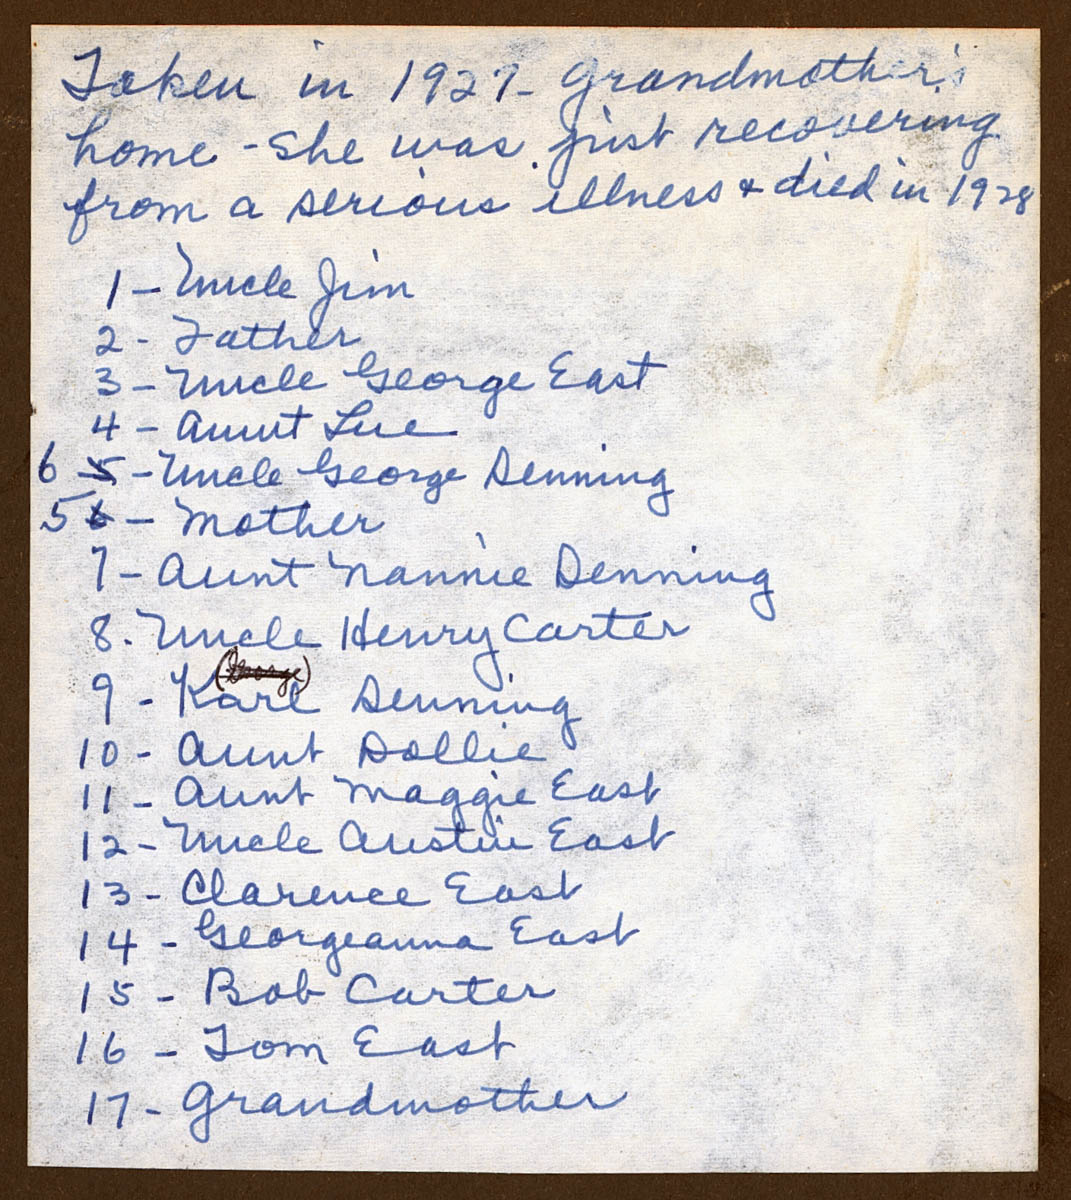 Taken in 1927- Grandmother's
home - She was just recovering
from a serious illness & died in 1928
1 - Uncle Jim
2 - Father
3 - Uncle George East
4 - Aunt Lue
6 5 - Uncle George Denning
5 6 - Mother
7 - Aunt Nannie Denning
8. Uncle Henry Carter
(George)
9 - Karl Denning
10 - Aunt Dollie
11 - Aunt Maggie East
12 - Uncle Austin East
13 - Clarence East
14 - Georgeanna East
15 - Bob Carter
16 - Tom East
17 - Grandmother